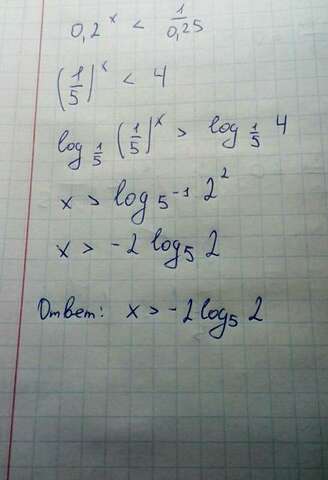 0,2^x < 1/0,25
(1/5)^x < 4
log_{1/5} (1/5)^x > log_{1/5} 4
x > log_{5^{-1}} 2^2
x > -2 log_5 2
Ответ: x > -2 log_5 2